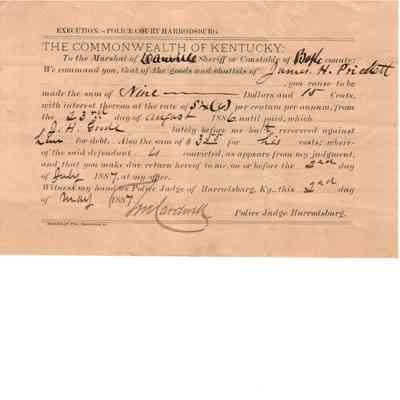 EXECUTION.—POLICE COURT HARRODSBURG
THE COMMONWEALTH OF KENTUCKY:
To the Marshal of Danville Sheriff or Constable of Boyle county:
We command you, that of the goods and chattels of James H. Prickett
, you cause to be
made the sum of Nine Dollars and 15 Cents,
with interest thereon at the rate of 6 per centum per annum, from
the 23rd day of August 1886 until paid, which
J. H. lately before me hath recovered against
him for debt. Also the sum of $ 3 for his costs; where-
of the said defendant is convicted, as appears from my judgment,
and that you make due return hereof to me, on or before the 2nd day
of July 1887, at my office.
Witness my hand as Police Judge of Harrodsburg, Ky., this 2nd day
of May 1887
Cardwell
Police Judge Harrodsburg.